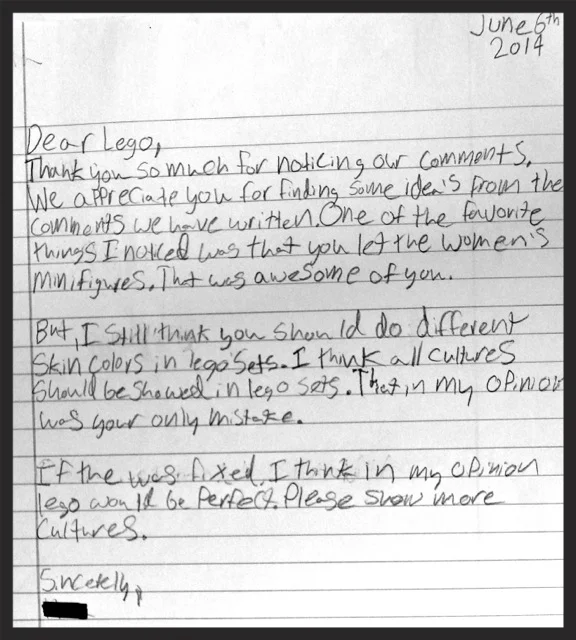 June 6th
2014
Dear Lego,
Thank you so much for noticing our comments.
We appreciate you for finding some idea's from the
comments we have written. One of the favorite
things I noticed was that you let the women's
minifigures. That was awesome of you.
But, I still think you should do different
skin colors in lego sets. I think all cultures
should be showed in lego sets. That, in my opinion
was your only mistake.
If the was fixed, I think in my opinion
lego would be perfect. Please show more
cultures.
Sincerelly,